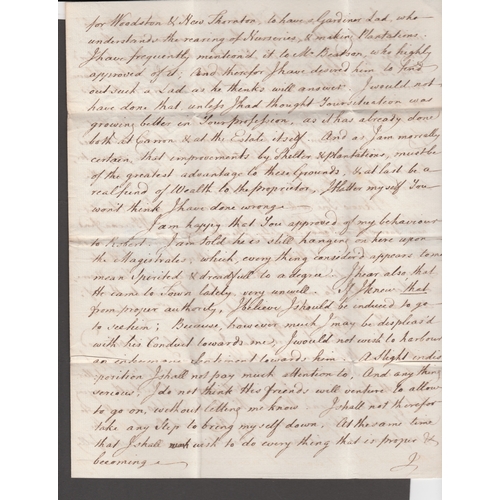 for Woodston & New Thornton, to have a Gardiner Lad, who
understands the rearing of Nurseries, & making Plantations.
I have frequently mentioned it to Mr Beatson, who highly
approved of it; And therefor I have desired him to find
out such a Lad, as he thinks will answer. I would not
have done that unless I had thought Your situation was
growing better in Your profession, as it has already done
both at Carron & at the Estate itself. And as I am morally
certain that improvements by Shelter & plantations, must be
of the greatest advantage to these Grounds, & at last be a
real fund of Wealth to the proprietor, I flatter myself You
won't think I have done wrong
I am happy that You approved of my behaviour
to Robert. I am told he is still hanging on here upon
the Magistrates, which, every thing considered appears to me
mean Spirited & dreadfull to a degree. I hear also, that
He came to Town lately very unwell. If I knew that
from proper authority, I believe I should be induced to go
to see him; Because, however much I may be displeas'd
with his Conduct towards me, I would not wish to harbour
an resentment towards him. A slight indis
position I shall not pay much attention to. And any thing
serious, I do not think His friends will venture to allow
to go on, without letting me know. I shall not therefor
take any Step to bring myself down. At the same time
that I shall wish to do every thing that is proper &
becoming
I